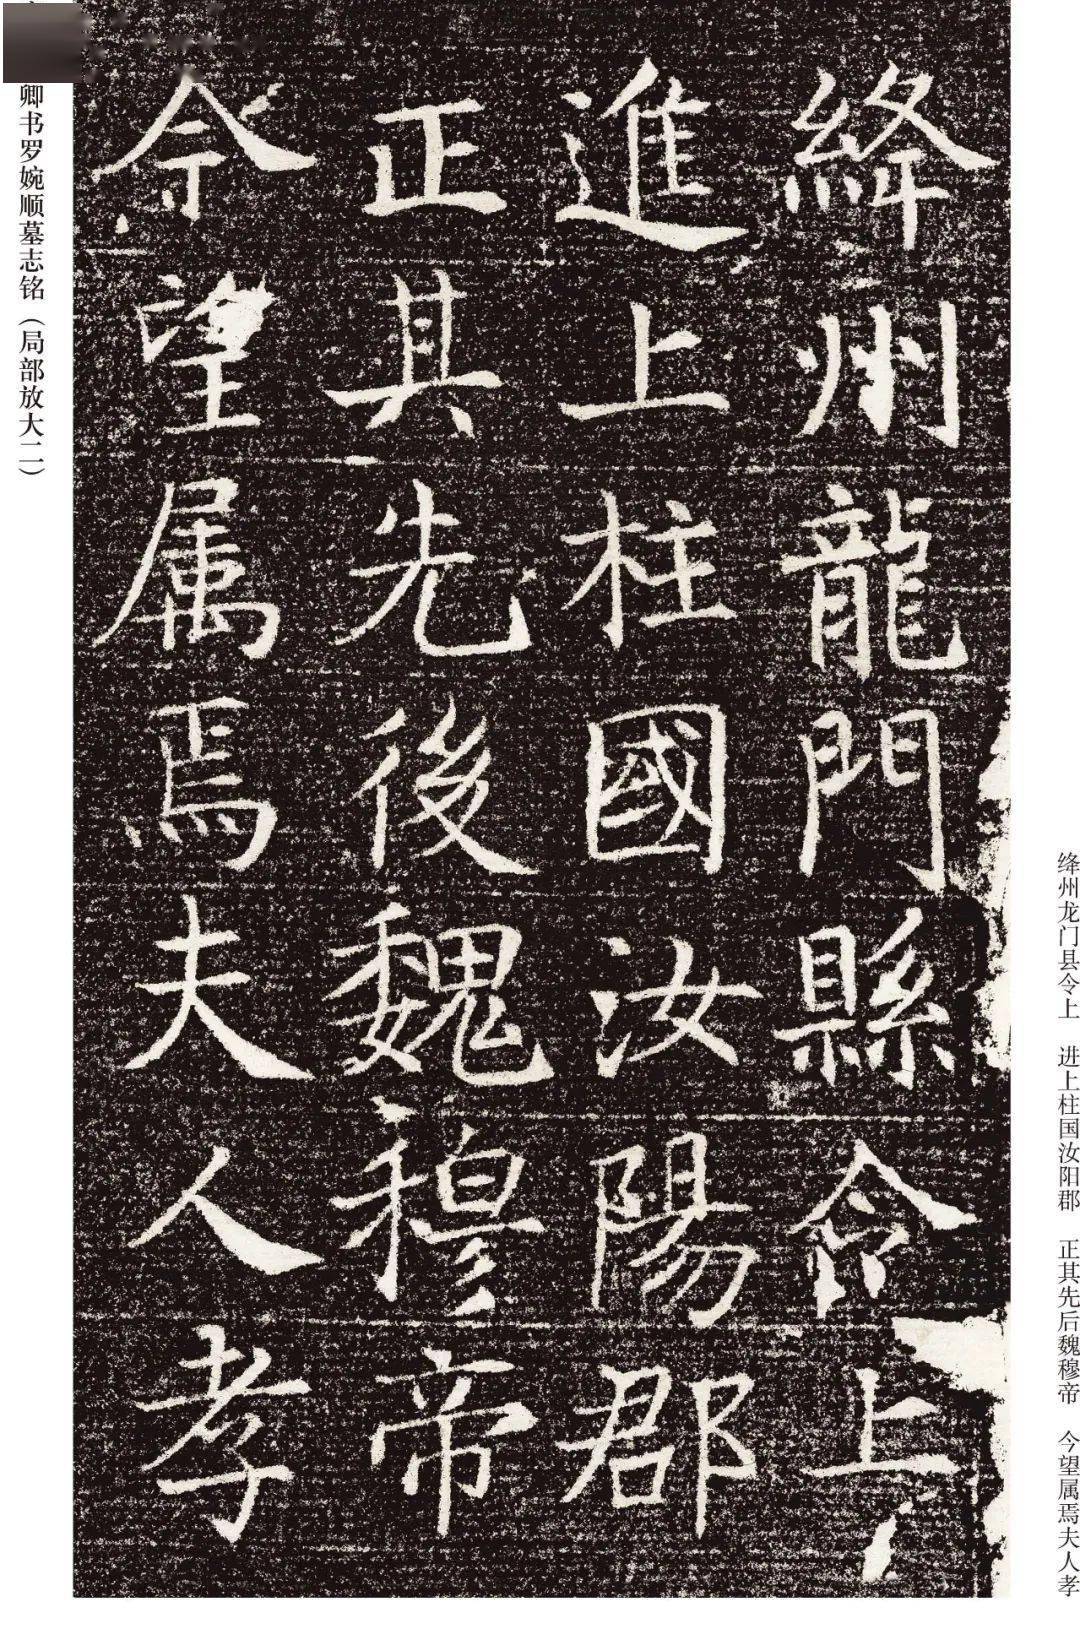 絳州龍門縣令上
進上柱國汝陽郡
正其先後魏穆帝
今望属焉夫人孝
绛州龙门县令上　进上柱国汝阳郡　正其先后魏穆帝　今望属焉夫人孝
卿书罗婉顺墓志铭（局部放大二）